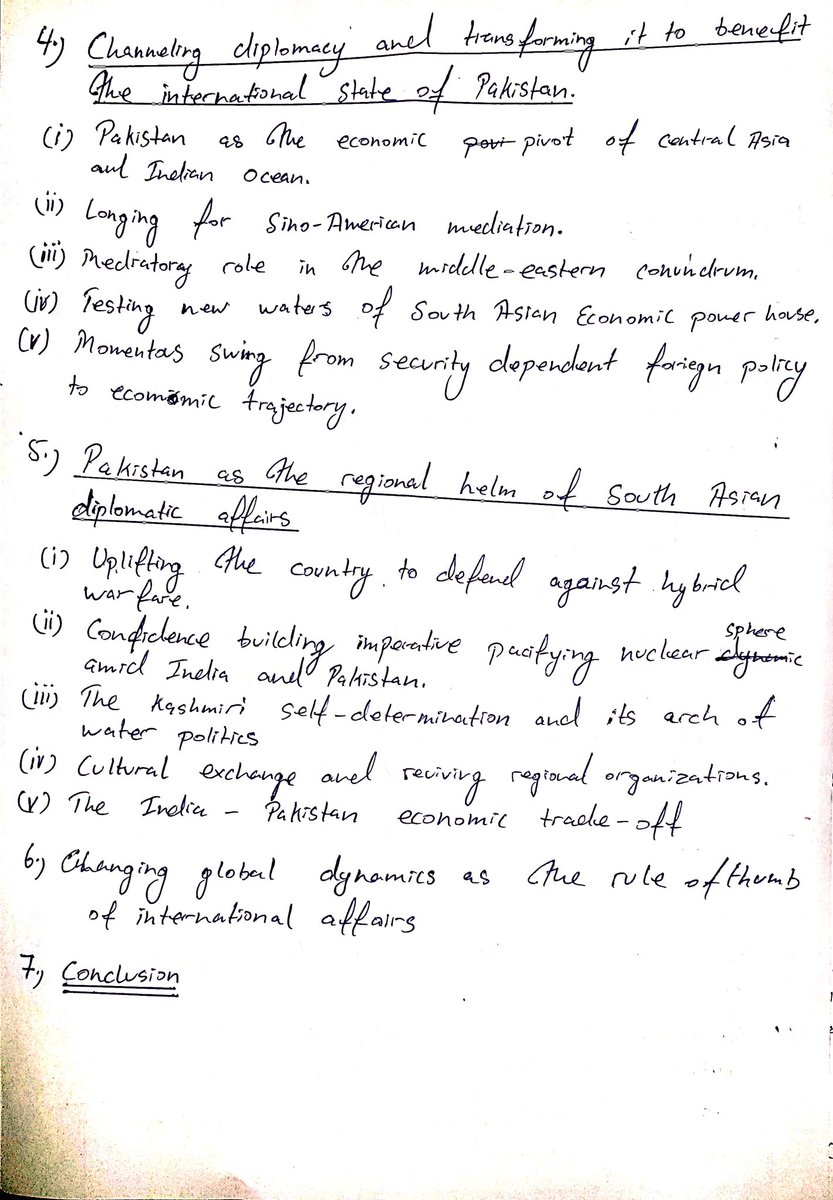 4.) Channeling diplomacy and transforming it to benefit
the international state of Pakistan.
(i) Pakistan as the economic pivot of central Asia
and Indian Ocean.
(ii) Longing for Sino-American mediation.
(iii) Mediatory role in the middle-eastern conundrum.
(iv) Testing new waters of South Asian Economic power house.
(v) Momentous swing from security dependent foriegn policy
to economic trajectory.
5.) Pakistan as the regional helm of South Asian
diplomatic affairs
(i) Uplifting the country to defend against hybrid
warfare.
(ii) Confidence building imperative pacifying nuclear sphere
amid India and Pakistan.
(iii) The Kashmiri self-determination and its arch of
water politics
(iv) Cultural exchange and reviving regional organizations.
(v) The India - Pakistan economic trade-off
6.) Changing global dynamics as the rule of thumb
of international affairs
7.) Conclusion